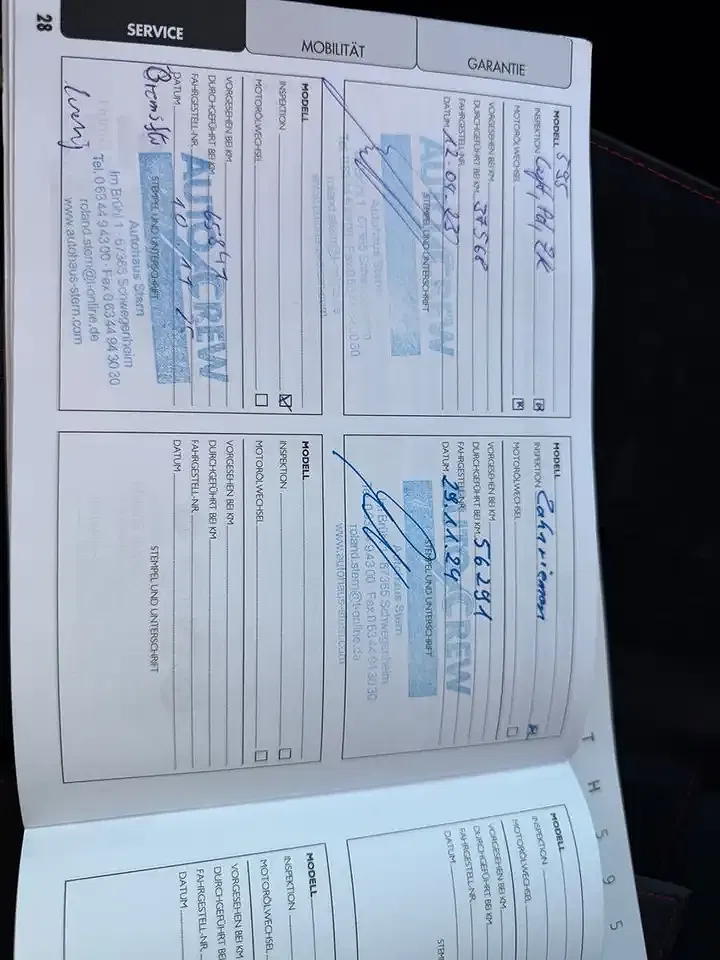 SERVICE
MOBILITÄT
GARANTIE
28
MODELL 595
INSPEKTION
MOTORÖLWECHSEL
VORGESEHEN BEI KM
DURCHGEFÜHRT BEI KM 37568
FAHRGESTELL-NR.
DATUM 12.09.23
STEMPEL UND UNTERSCHRIFT
MODELL
INSPEKTION Zahnriemen
MOTORÖLWECHSEL
VORGESEHEN BEI KM
DURCHGEFÜHRT BEI KM 56291
FAHRGESTELL-NR.
DATUM 29.11.24
STEMPEL UND UNTERSCHRIFT
Autohaus Stern
Im Brühl 1 · 67365 Schwegenheim
Tel. 0 63 44 9 43 00 · Fax 0 63 44 94 30 30
roland.stern@t-online.de
www.autohaus-stern.com
MODELL
INSPEKTION
MOTORÖLWECHSEL
VORGESEHEN BEI KM
DURCHGEFÜHRT BEI KM 65847
FAHRGESTELL-NR.
DATUM 10.11.25
AUTO CREW
STEMPEL UND UNTERSCHRIFT
Autohaus Stern
Im Brühl 1 · 67365 Schwegenheim
Tel. 0 63 44 9 43 00 · Fax 0 63 44 94 30 30
roland.stern@t-online.de
www.autohaus-stern.com
MODELL
INSPEKTION
MOTORÖLWECHSEL
VORGESEHEN BEI KM
DURCHGEFÜHRT BEI KM
FAHRGESTELL-NR.
DATUM
STEMPEL UND UNTERSCHRIFT
MODELL
INSPEKTION
MOTORÖLWECHSEL
VORGESEHEN BEI KM
DURCHGEFÜHRT BEI KM
FAHRGESTELL-NR.
DATUM
MODELL
INSPEKTION
MOTORÖLWECHSEL
VORGESEHEN BEI KM
DURCHGEFÜHRT BEI KM
FAHRGESTELL-NR.
DATUM
TH595